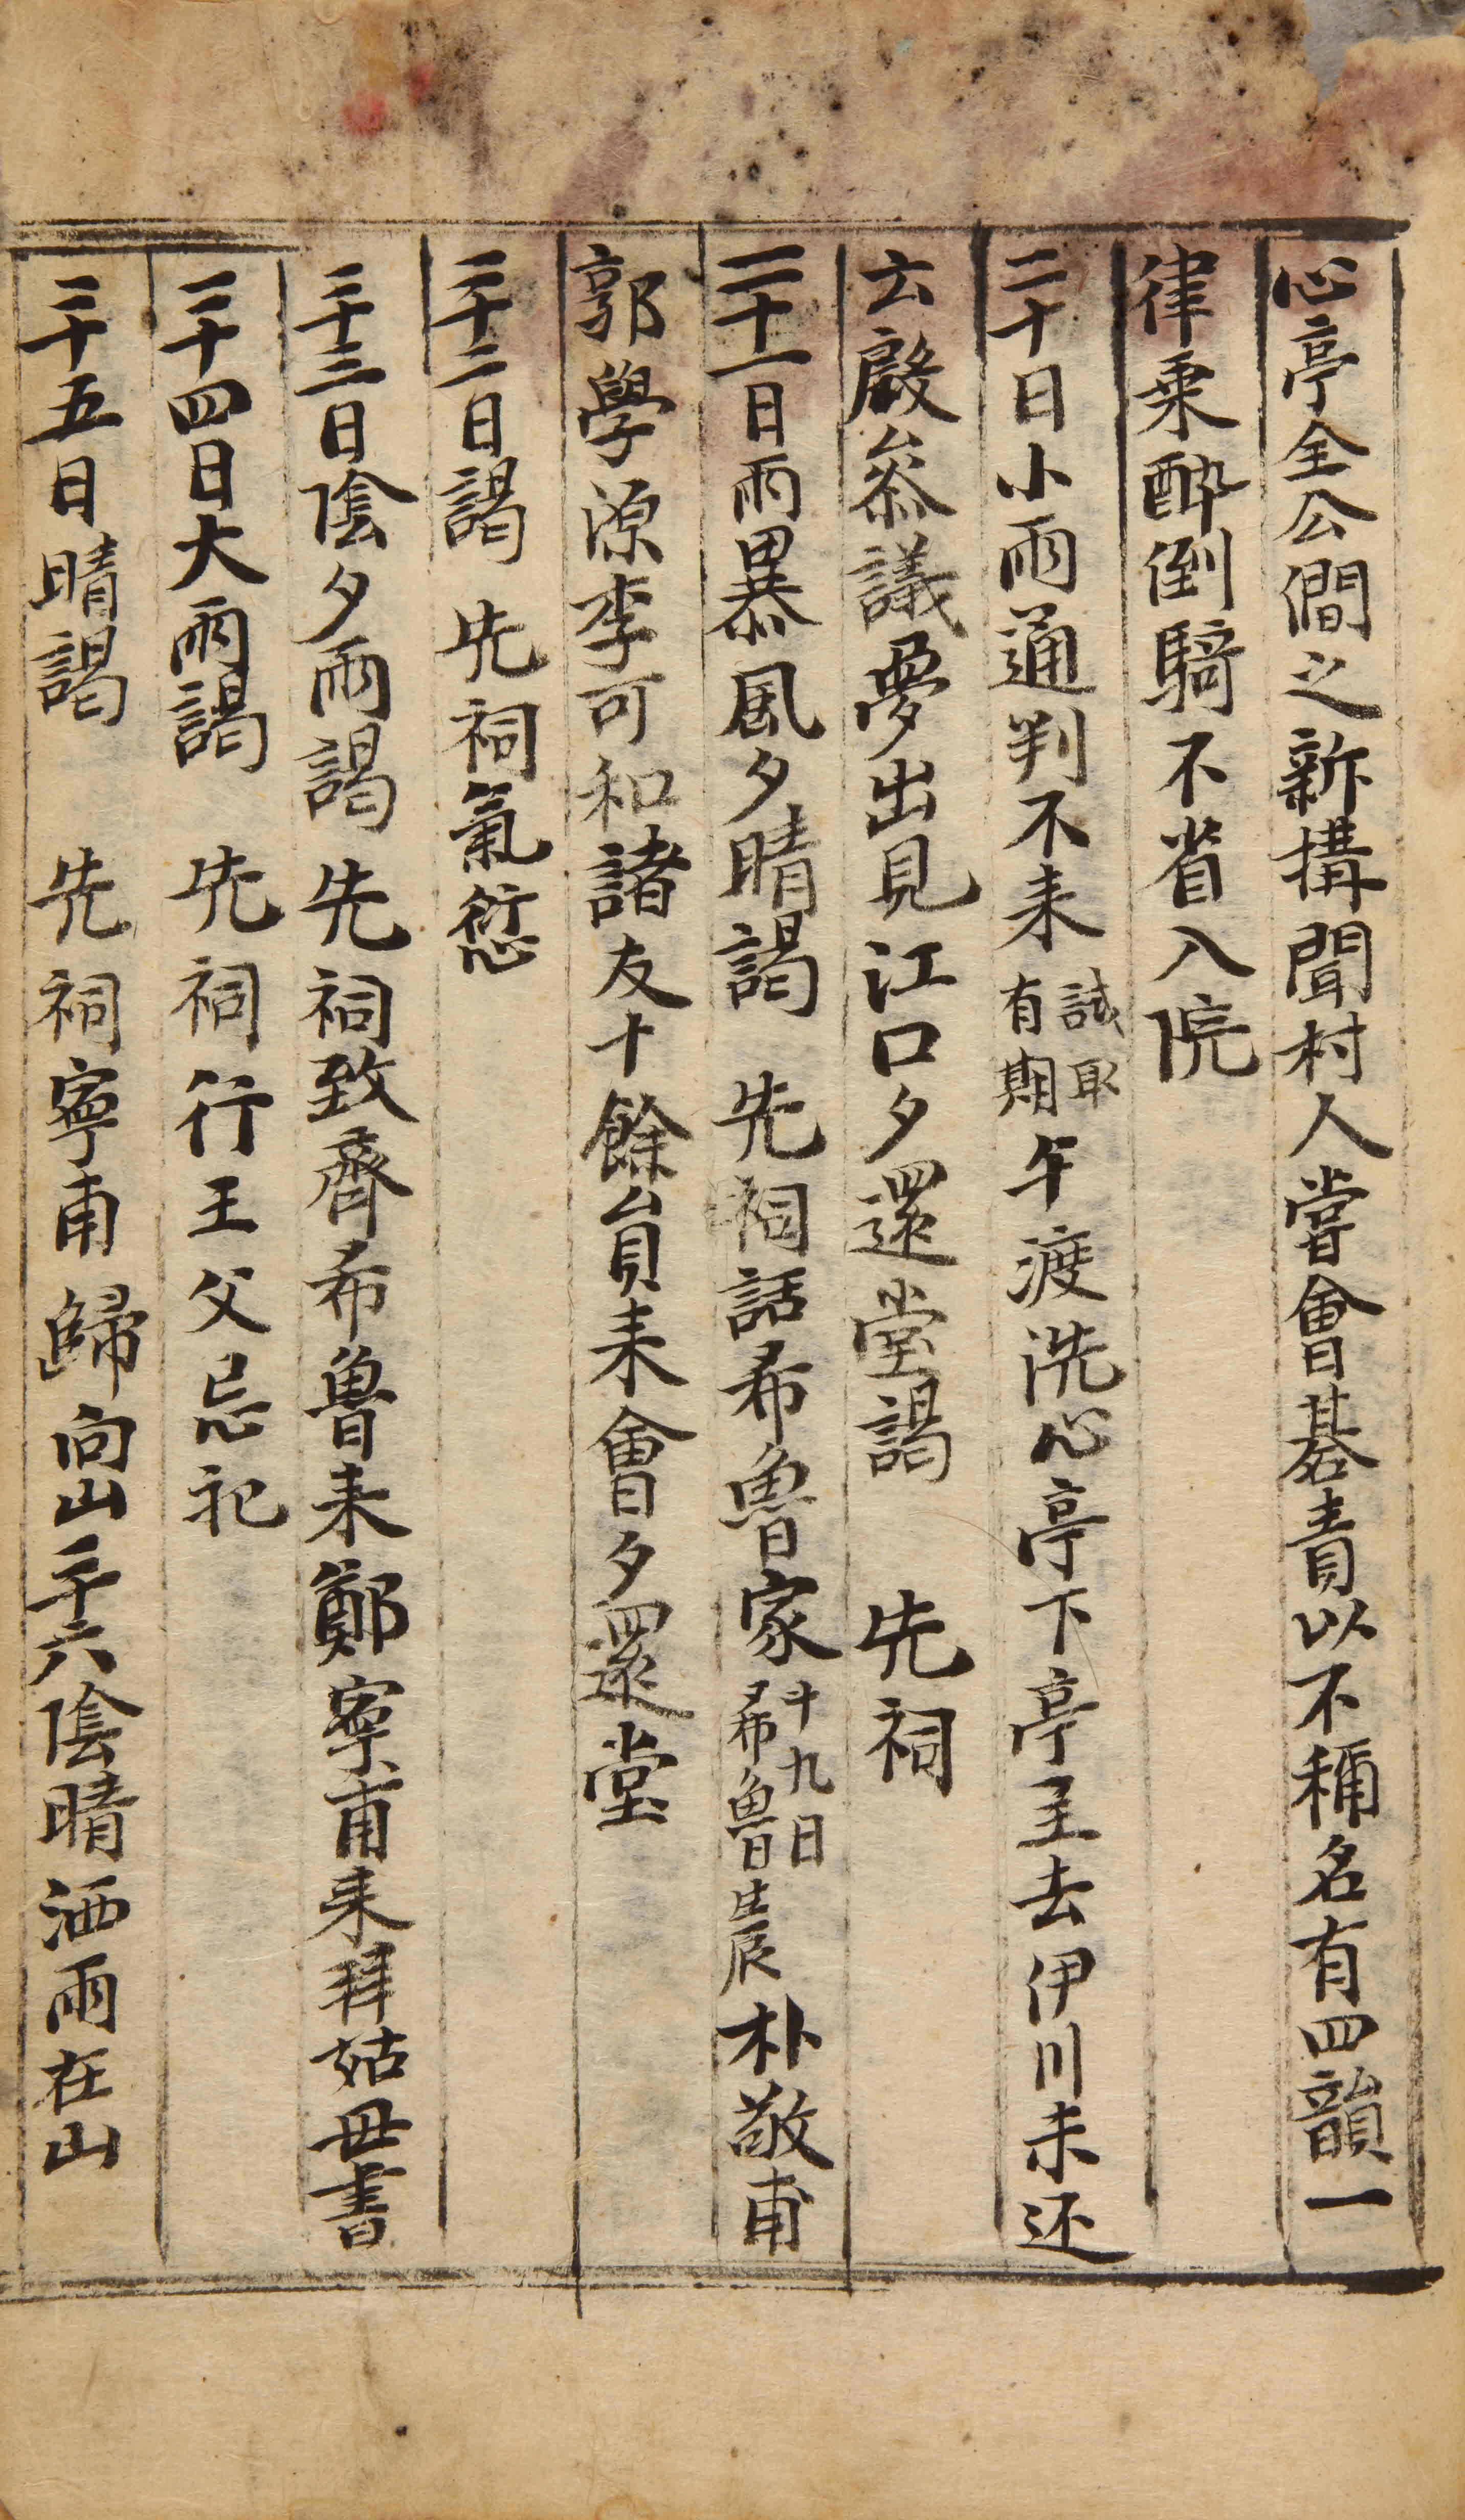 心亭全公僩之新搆聞村人嘗會碁責以不稱名有四韻一
律乘醉倒騎不省入院
二十日小雨通判不来試取有期午渡洗心亭下亭主去伊川未还
云殷叅議夢出見江口夕還堂謁　先祠
二十一日雨暴風夕晴謁　先祠話希魯家十九日夕希魯喪朴敬甫
郭學源李可和諸友十餘員来會夕還堂
二十二日謁　先祠氣愆
二十三日陰夕雨謁　先祠致齊希魯来鄭寧甫来拜姑母書
二十四日大雨謁　先祠行王父忌祀
二十五日晴謁　先祠寧甫歸向山二十六陰晴洒雨在山